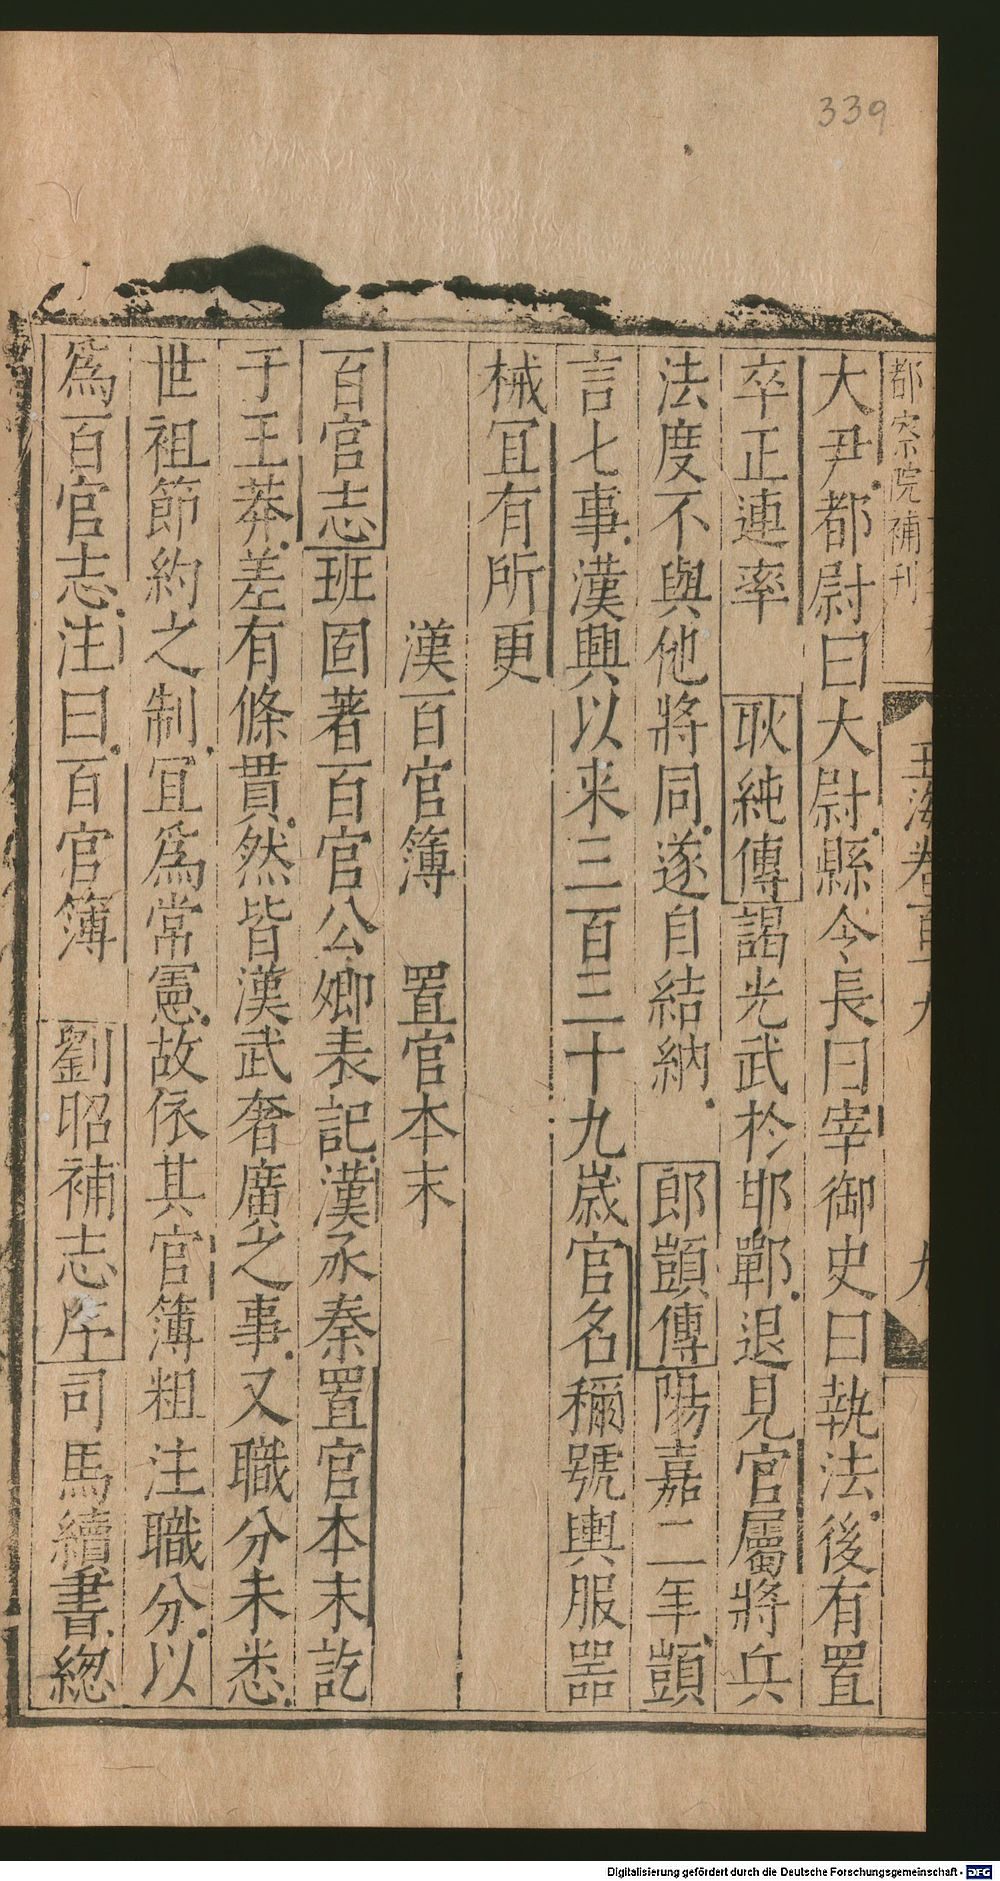 339
都察院補刊
玉海卷百十九
九
大尹都尉曰大尉縣令長曰宰御史曰執法後有置
卒正連率　耿純傳謁光武於邯鄲退見官屬將兵
法度不與他將同遂自結納　郎顗傳陽嘉二年顗
言七事漢興以来三百三十九歲官名稱號輿服器
械宜有所更
漢百官簿　置官本末
百官志班固著百官公卿表記漢承秦置官本末訖
于王莽差有條貫然皆漢武奢廣之事又職分未悉
世祖節約之制宜爲常憲故依其官簿粗注職分以
爲百官志注曰百官簿　劉昭補志序司馬續書緫
Digitalisierung gefördert durch die Deutsche Forschungsgemeinschaft - DFG